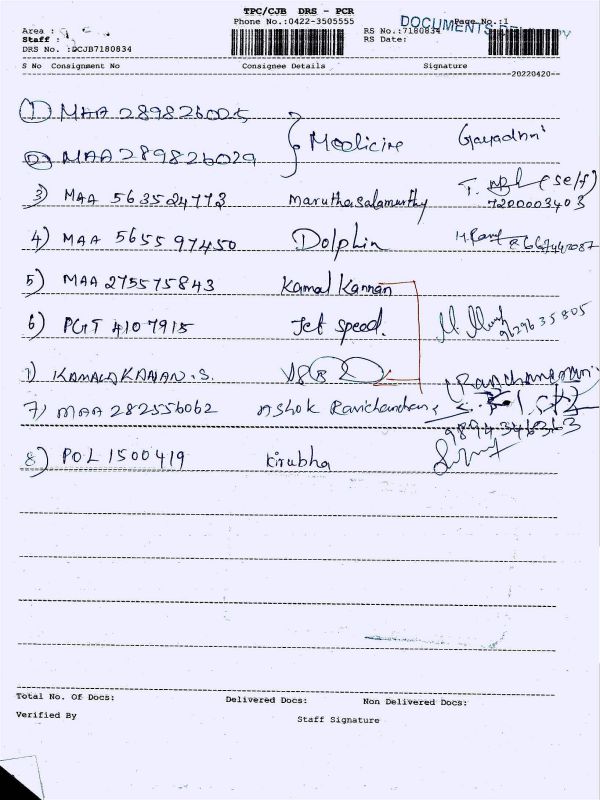 TPC/CJB DRS - PCR
Phone No.:0422-3505555
DOCUMENTS
Page No.:1
Area :
Staff :
RS No.:7180834
RS Date:
DRS No. :DCJB7180834
S No Consignment No Consignee Details Signature
20220420
1) MAA 289826025 Medicine Gayadhri
2) MAA 289826029
3) MAA 563524773 Maruthasalamurthy T. (self)
7200003403
4) MAA 565597450 Dolphin
5) MAA 275575843 Kamal Kannan
6) PGT 4107915 Jet speed. 9629635805
1) KAMALAKANAN.S. Ravichandran
7) MAA 282556062 Ashok Ravichandran
9894346363
8) POL 1500419 Kirubha
Total No. Of Docs: Delivered Docs: Non Delivered Docs:
Verified By Staff Signature